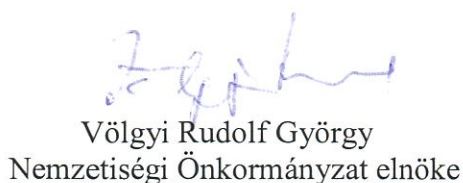 Völgyi Rudolf György
Nemzetiségi Önkormányzat elnöke